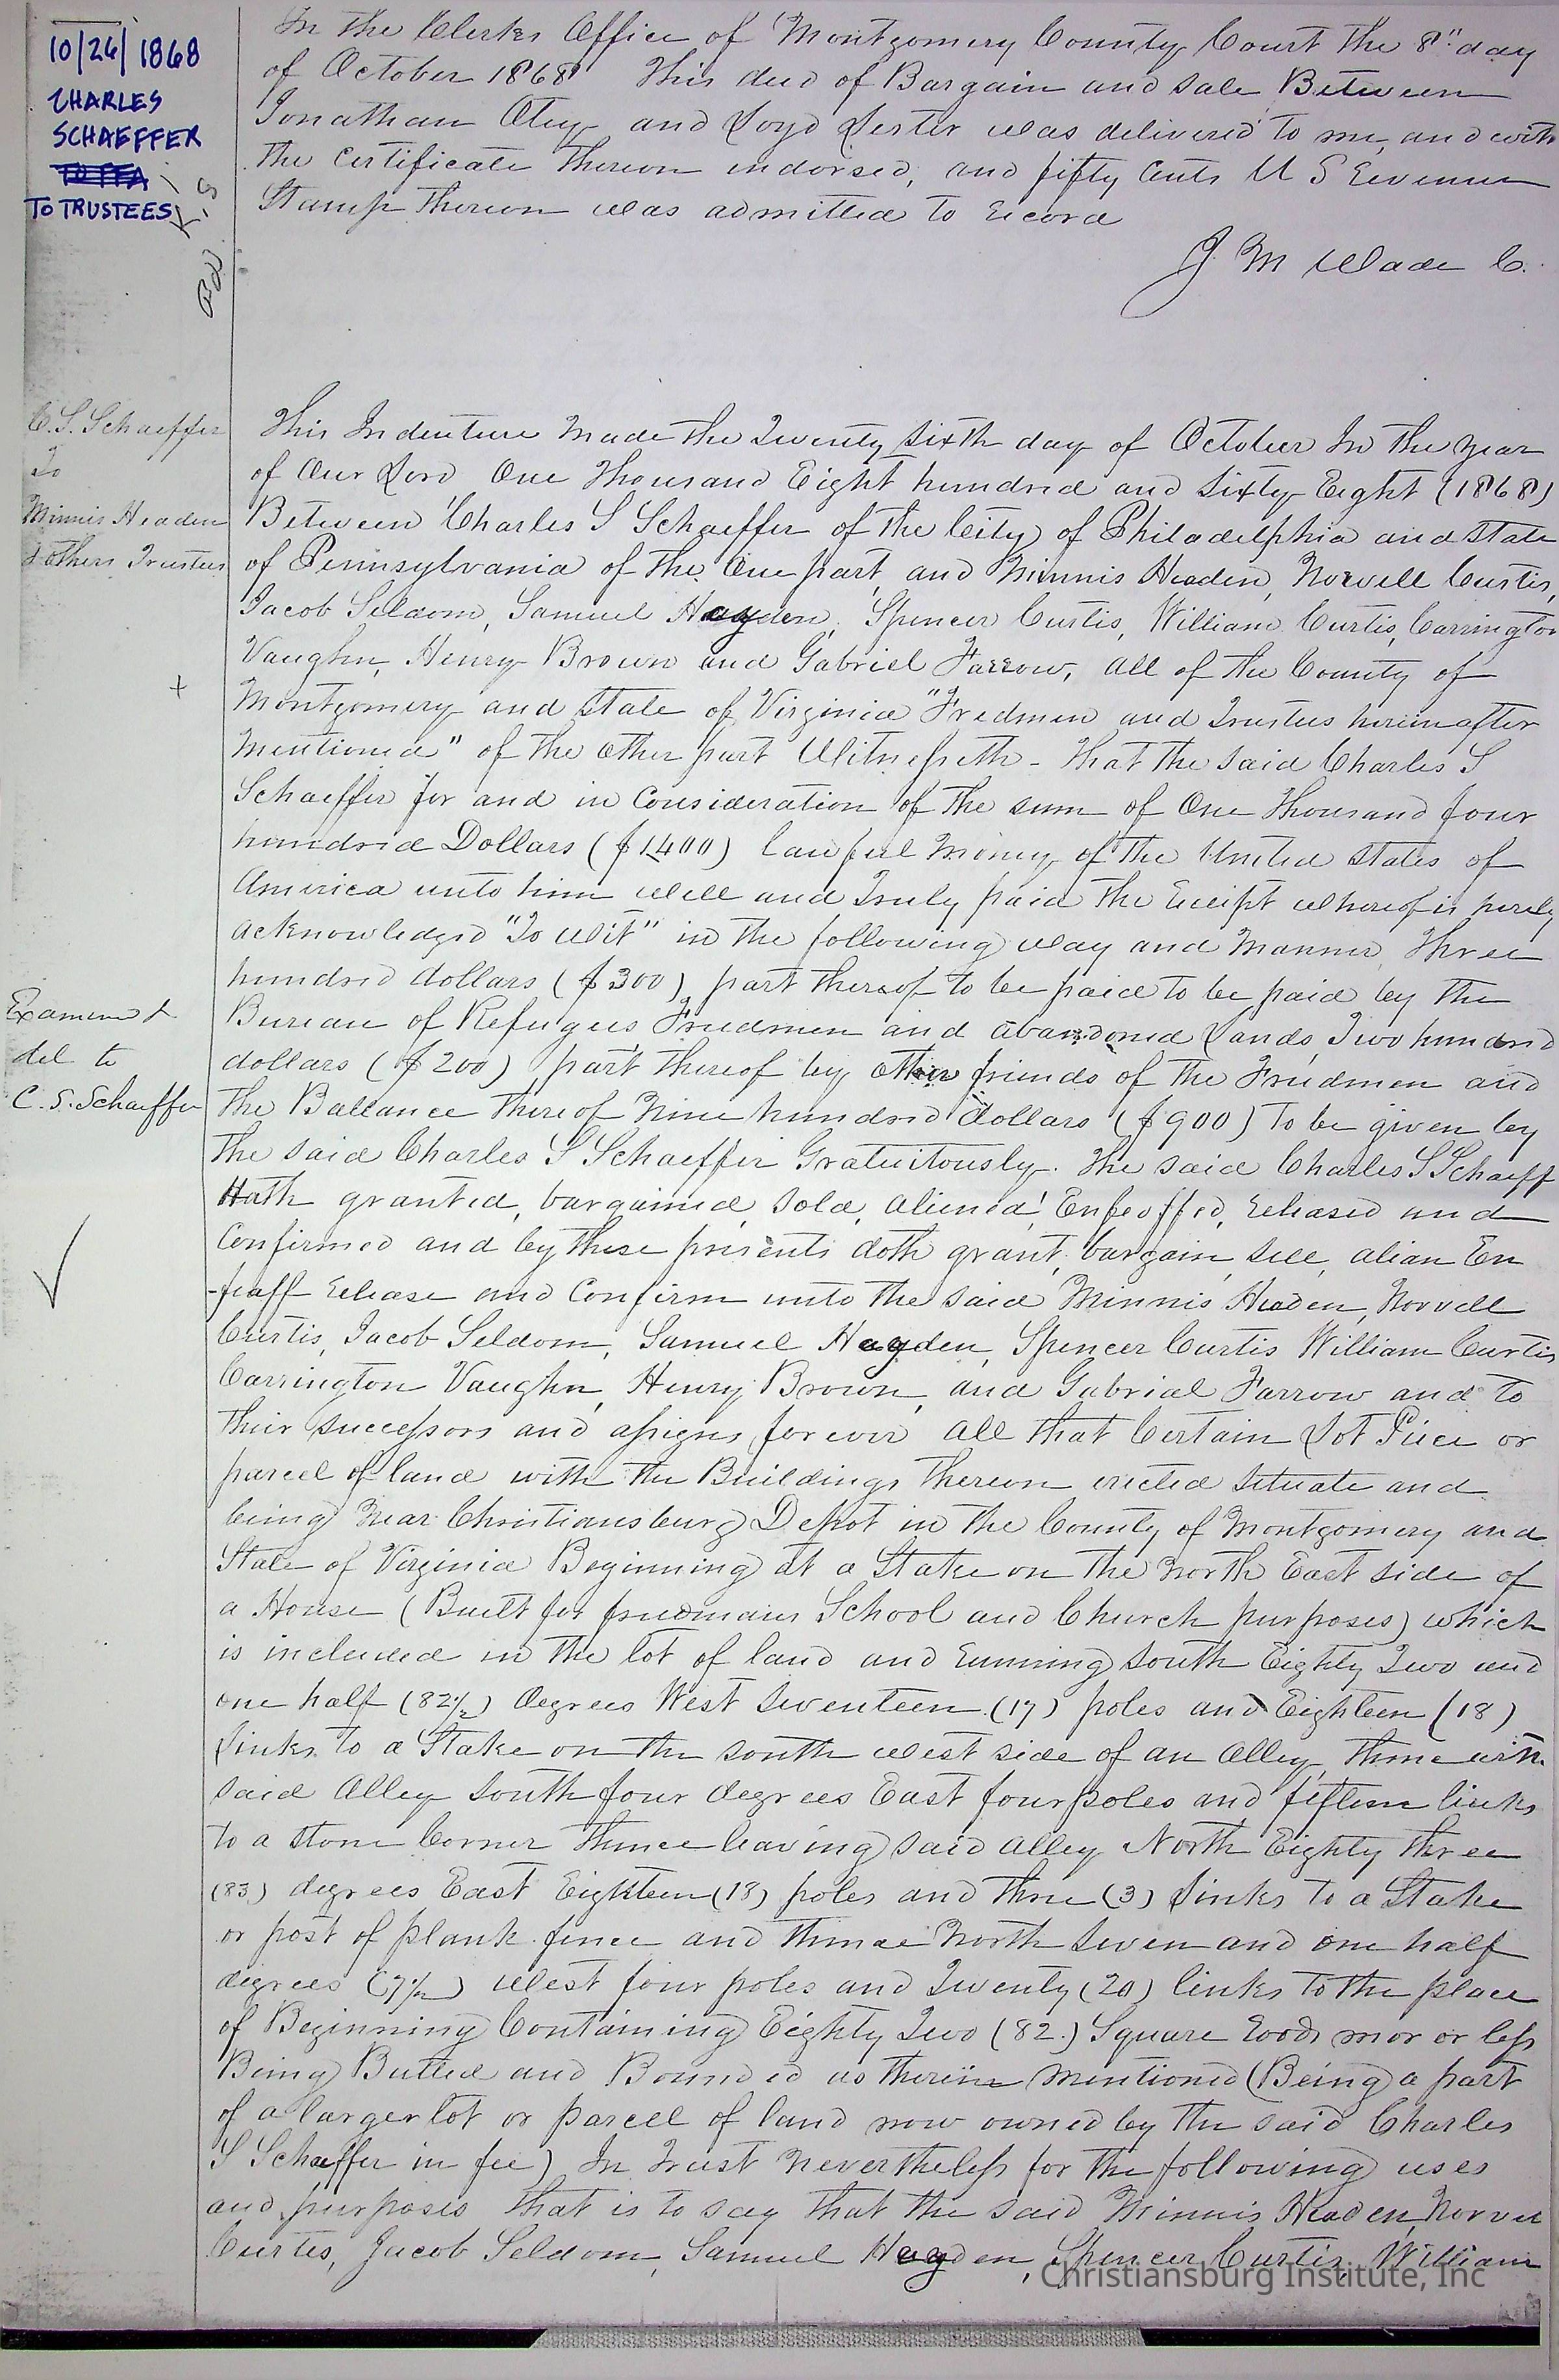 10/26/1868
CHARLES
SCHAEFFER
TO TRUSTEES
In the Clerks Office of Montgomery County Court the 8" day
of October 1868 This deed of Bargain and sale Between
Jonathan Otey and Loyd Lester was delivered to me, and with
the Certificate thereon indorsed, and fifty Cents U S Revenue
Stamp thereon was admitted to record
J M Wade C.
C. S. Schaeffer
To
Minnis Headen
& others Trustees
This Indenture Made the Twenty Sixth day of October In the year
of Our Lord One Thousand Eight hundred and Sixty Eight (1868)
Between Charles S Schaeffer of the City of Philadelphia and State
of Pennsylvania of the One part, and Minnis Headen, Norvell Curtis,
Jacob Seldom, Samuel Hayden, Spencer Curtis, William Curtis, Carrington
Vaughn, Henry Brown and Gabriel Farrow, all of the County of
+
Montgomery and State of Virginia "Fredmen and Trustees hereinafter
Mentioned" of the other part Witnesseth - That the said Charles S
Schaeffer for and in Consideration of the sum of One Thousand four
hundred Dollars ($1400) lawful Money of the United States of
America unto him well and Truly paid the receipt whereof is herely
acknowledged "To Wit" in the following way and Manner, Three
hundred dollars ($300) part thereof to be paid to be paid by the
Bureau of Refugees Freedmen and abandoned Lands, Two hundred
dollars ($200) part thereof by other friends of the Freedmen and
the Ballance thereof Nine hundred dollars ($900) To be given by
the said Charles S Schaeffer Gratuitously. The said Charles S Schaeff
Examined &
del to
C. S. Schaeffer
Hath granted, bargained, Sold, aliened, Enfeoffed, released and
Confirmed and by these presents doth grant, bargain, sell, alian En
-feaff release and Confirm unto the said Minnis Headen, Norvell
Curtis, Jacob Seldom, Samuel Hayden, Spencer Curtis William Curtis
Carrington Vaughn, Henry Brown, and Gabrial Farrow and to
their successors and assigns forever all that Certain Lot Piece or
parcel of land with the Buildings thereon erected situate and
being Near Christiansburg Depot in the County of Montgomery and
State of Virginia Beginning at a Stake on the North East side of
a House (Built for freedmans School and Church purposes) which
is included in the lot of land and running South Eighty Two and
one half (82½) degrees West Seventeen (17) poles and Eighteen (18)
Links to a Stake on the South west side of an Alley, thence with
said Alley South four degrees East four poles and fifteen links
to a stone Corner thence leaving said alley North Eighty three
(83) degrees East Eighteen (18) poles and three (3) Links to a Stake
or post of plank fence and thence North Seven and one half
degrees (7½) West four poles and Twenty (20) links to the place
of Beginning Containing Eighty Two (82.) Square roods mor or less
Being Butted and Bounded as therein Mentioned (Being a part
of a larger lot or parcel of land now owned by the said Charles
S Schaffer in fee) In Trust Nevertheless for the following uses
and purposes that is to say that the said Minnis Headen, Norvel
Curtis, Jacob Seldom, Samuel Hayden, Spencer Curtis, William
Christiansburg Institute, Inc